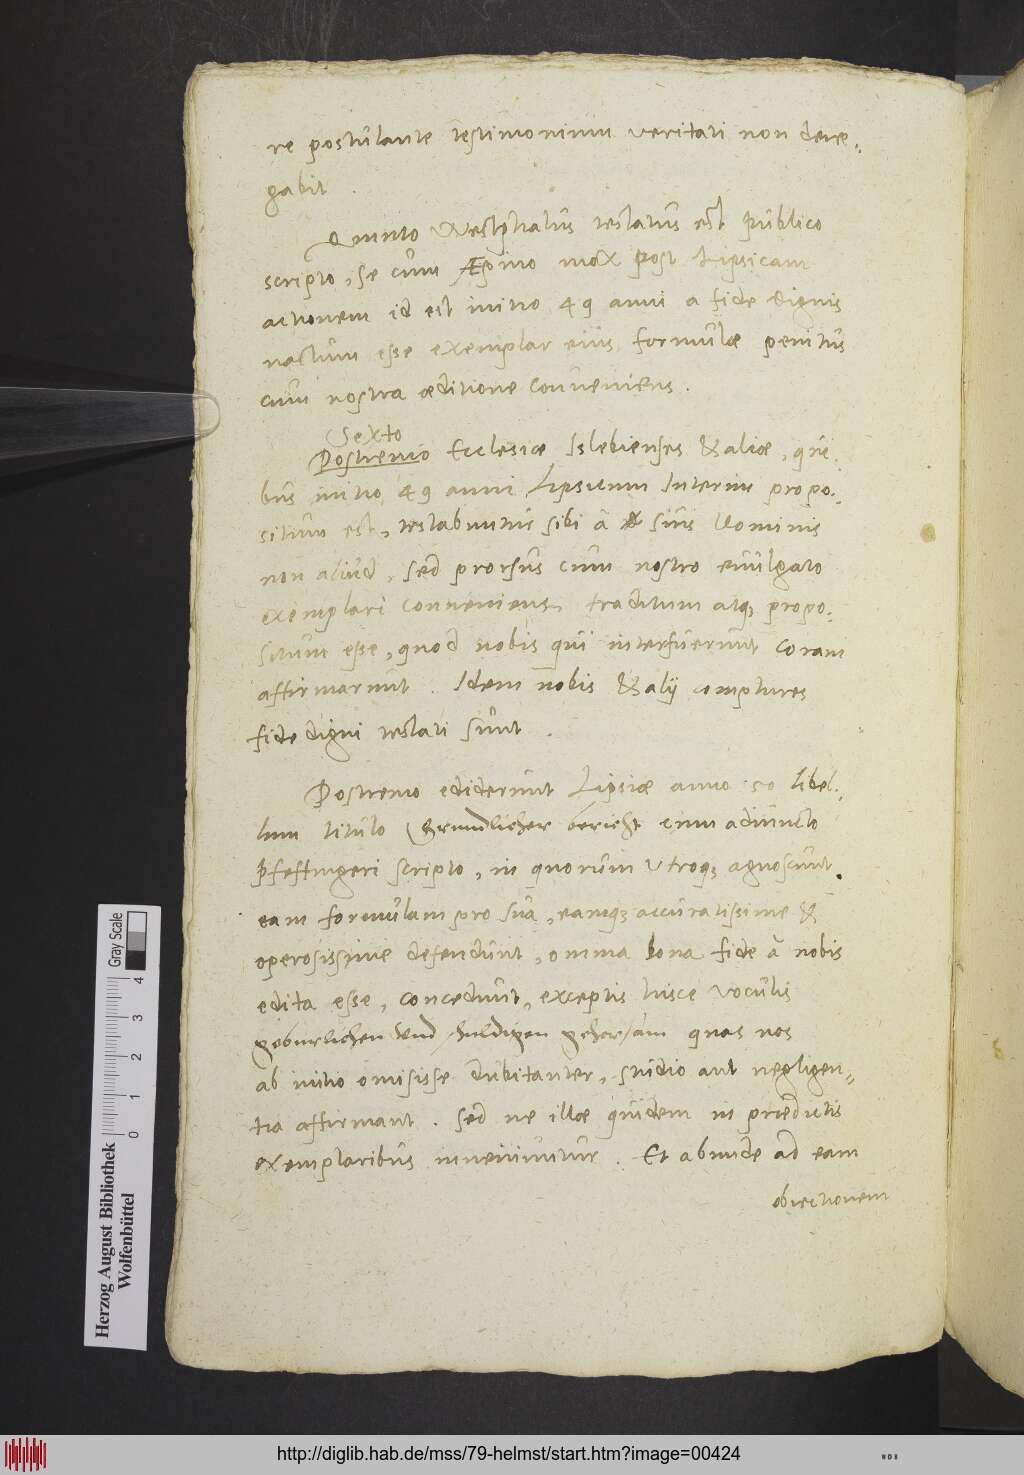 re postulante testimonium veritati non dene-
gabit.
Quinto Westphalus testatus est publico
scripto, se cum Æpino mox post Lipsicam
actionem id est initio 49 anni a fide dignis
nactum esse exemplar eius formulæ penitus
cum nostra æditione conveniens.
Sexto
Postremo Ecclesiæ Islebienses & aliæ, qui-
bus initio 49 anni Lipsicum Interim propo-
situm est, testabuntur sibi a suis Dominis
non aliud, sed prorsus cum nostro evulgato
exemplari conveniens traditum atq; propo-
situm esse, quod nobis qui interfuerunt coram
affirmarunt. Idem nobis & alij complures
fide digni testati sunt.
Postremo ediderunt Lipsiæ anno 50 libel-
lum titulo Grundlicher bericht cum adiuncto
Pfeffingeri scripto, in quorum utroq; agnoscunt
eam formulam pro sua, eamq; accuratissime &
operosissime defendunt, omnia bona fide a nobis
edita esse, concedunt, exceptis hisce voculis
geburlichen und schuldigen gehorsam quas nos
ab initio omisisse dubitanter, studio aut negligen-
tia affirmant. Sed ne illæ quidem in prædictis
exemplaribus inveniuntur. Et abunde ad eam
obiectionem
Herzog August Bibliothek
Wolfenbüttel
0 1 2 3 4
Gray Scale
http://diglib.hab.de/mss/79-helmst/start.htm?image=00424